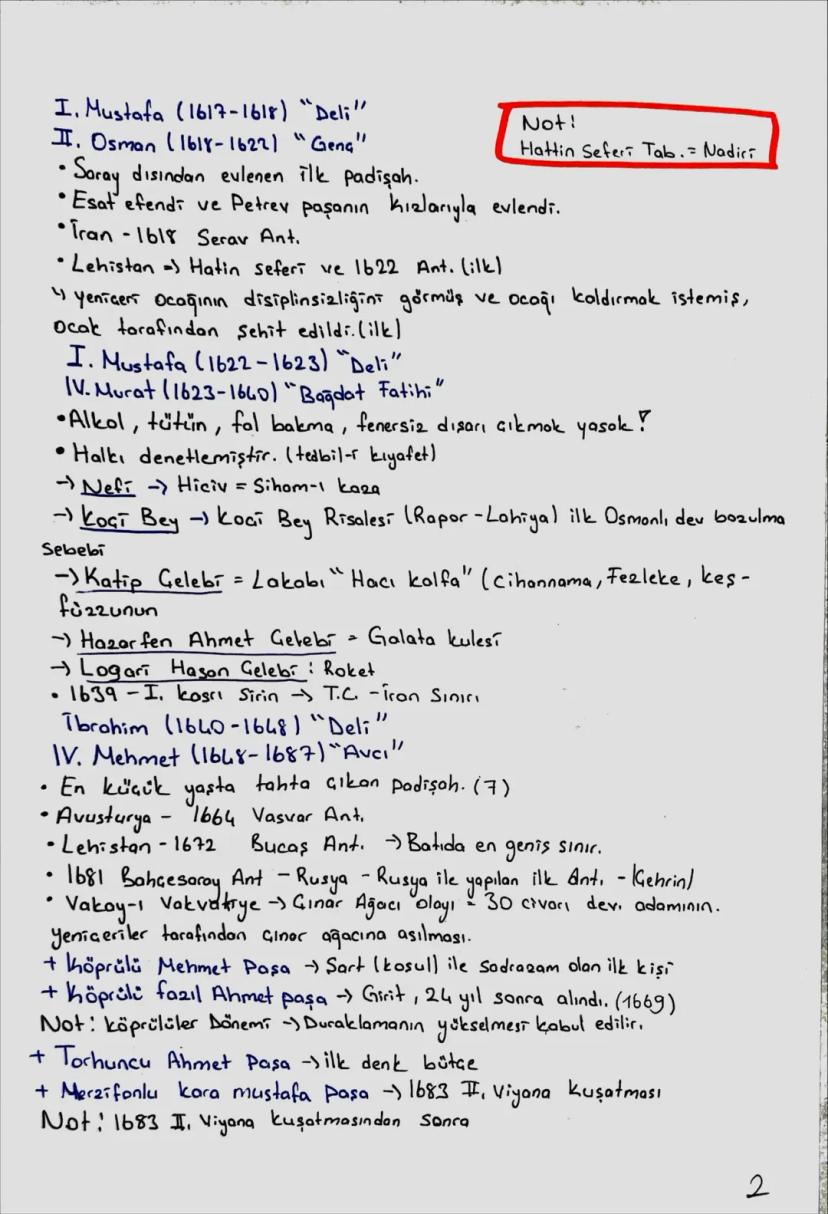 I. Mustafa (1617-1618) "Deli"
Not!
II. Osman (1618-1622) "Genç"
Hattin Seferi Tab. = Nadiri
• Saray dısından evlenen ilk padişah.
• Esat efendi ve Petrev paşanın kızlarıyla evlendi.
• İran - 1618 Serav Ant.
• Lehistan => Hatin seferi ve 1622 Ant. (ilk)
↳ yeniçeri ocağının disiplinsizliğini görmüş ve ocağı kaldırmak istemiş,
ocak tarafından şehit edildi. (ilk)
I. Mustafa (1622-1623) "Deli"
IV. Murat (1623-1640) "Bağdat Fatihi"
• Alkol, tütün, fal bakma, fenersiz dışarı çıkmak yasak!
• Halkı denetlemiştir. (tedbil-i kıyafet)
→ Nefi → Hiciv = Siham-ı kaza
→ Koçi Bey → Koçi Bey Risalesi (Rapor - Lahiya) ilk Osmanlı dev bozulma
Sebebi
→ Katip Çelebi = Lakabı "Hacı kalfa" (Cihannama, Fezleke, keş-
füzzunun
→ Hazarfen Ahmet Çelebi = Galata kulesi
→ Lagari Hasan Çelebi : Roket
• 1639 - I. kasrı Şirin → T.C. - İran Sınırı
İbrahim (1640-1648) "Deli"
IV. Mehmet (1648-1687) "Avcı"
• En küçük yaşta tahta çıkan padişah. (7)
• Avusturya - 1664 Vasvar Ant.
• Lehistan - 1672 Bucaş Ant. → Batıda en geniş sınır.
• 1681 Bahçesaray Ant - Rusya - Rusya ile yapılan ilk Ant. - (Çehrin)
• Vakay-ı Vakvakiye → Çınar Ağacı olayı = 30 civarı dev. adamının.
yeniçeriler tarafından çınar ağacına asılması.
+ Köprülü Mehmet Paşa → Şart (koşul) ile Sadrazam olan ilk kişi
+ Köprülü fazıl Ahmet paşa → Girit, 24 yıl sonra alındı. (1669)
Not! köprülüler Dönemi → Duraklamanın yükselmesi kabul edilir.
+ Torhuncu Ahmet Paşa → ilk denk bütçe
+ Merzifonlu kara mustafa paşa → 1683 II. Viyana kuşatması
Not! 1683 II. Viyana kuşatmasından sonra
2